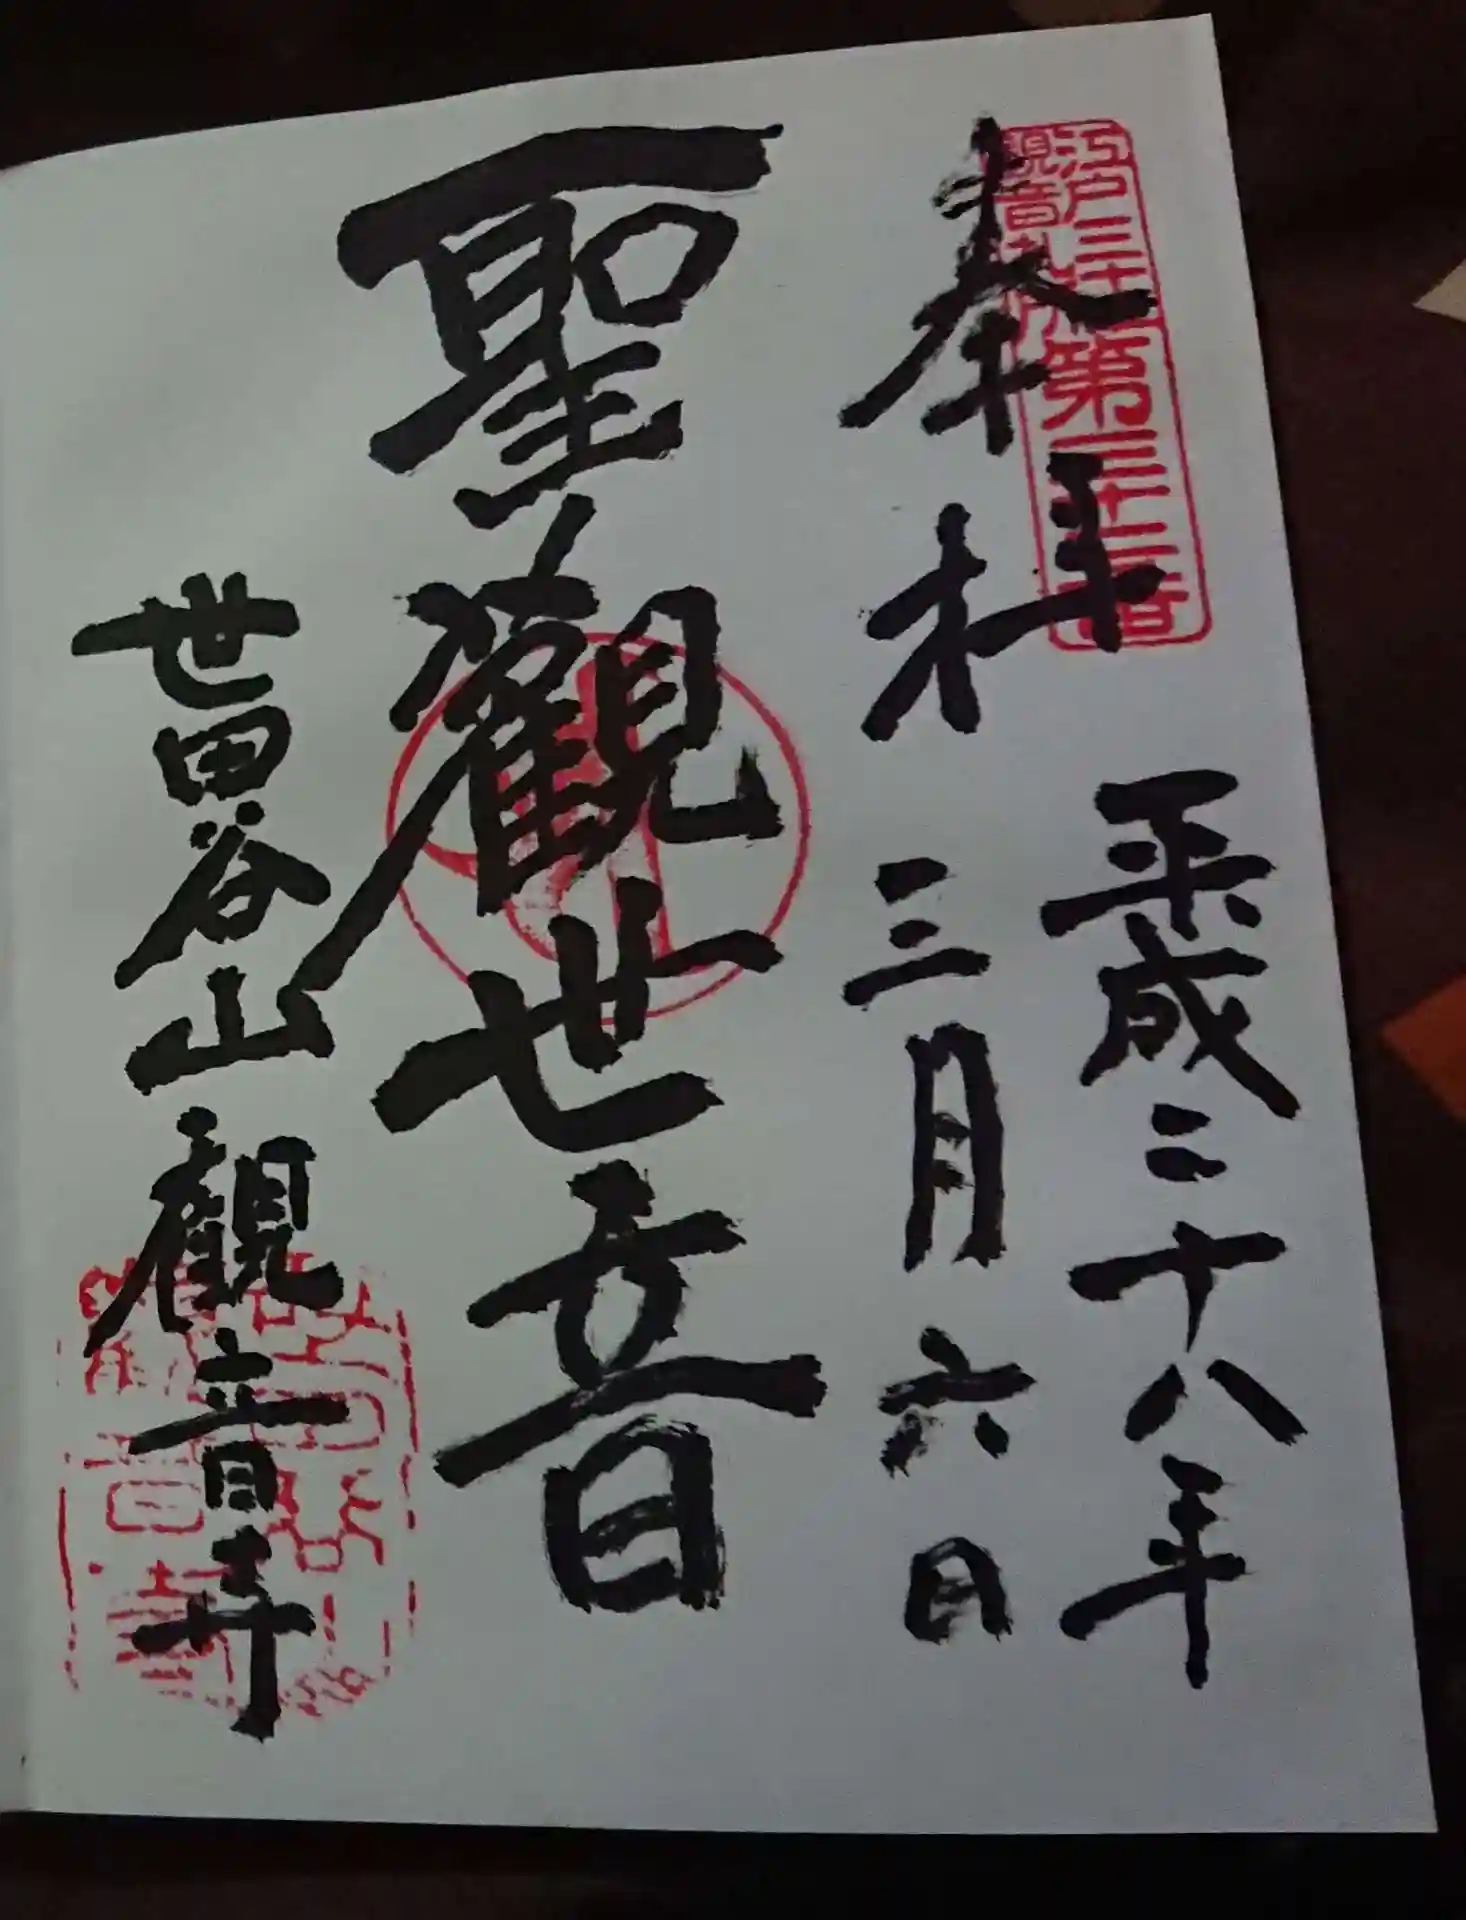 江戸三十三
観音札所
第三十二番
奉拝
平成二十八年
三月六日
聖觀世音
世田谷山觀音寺